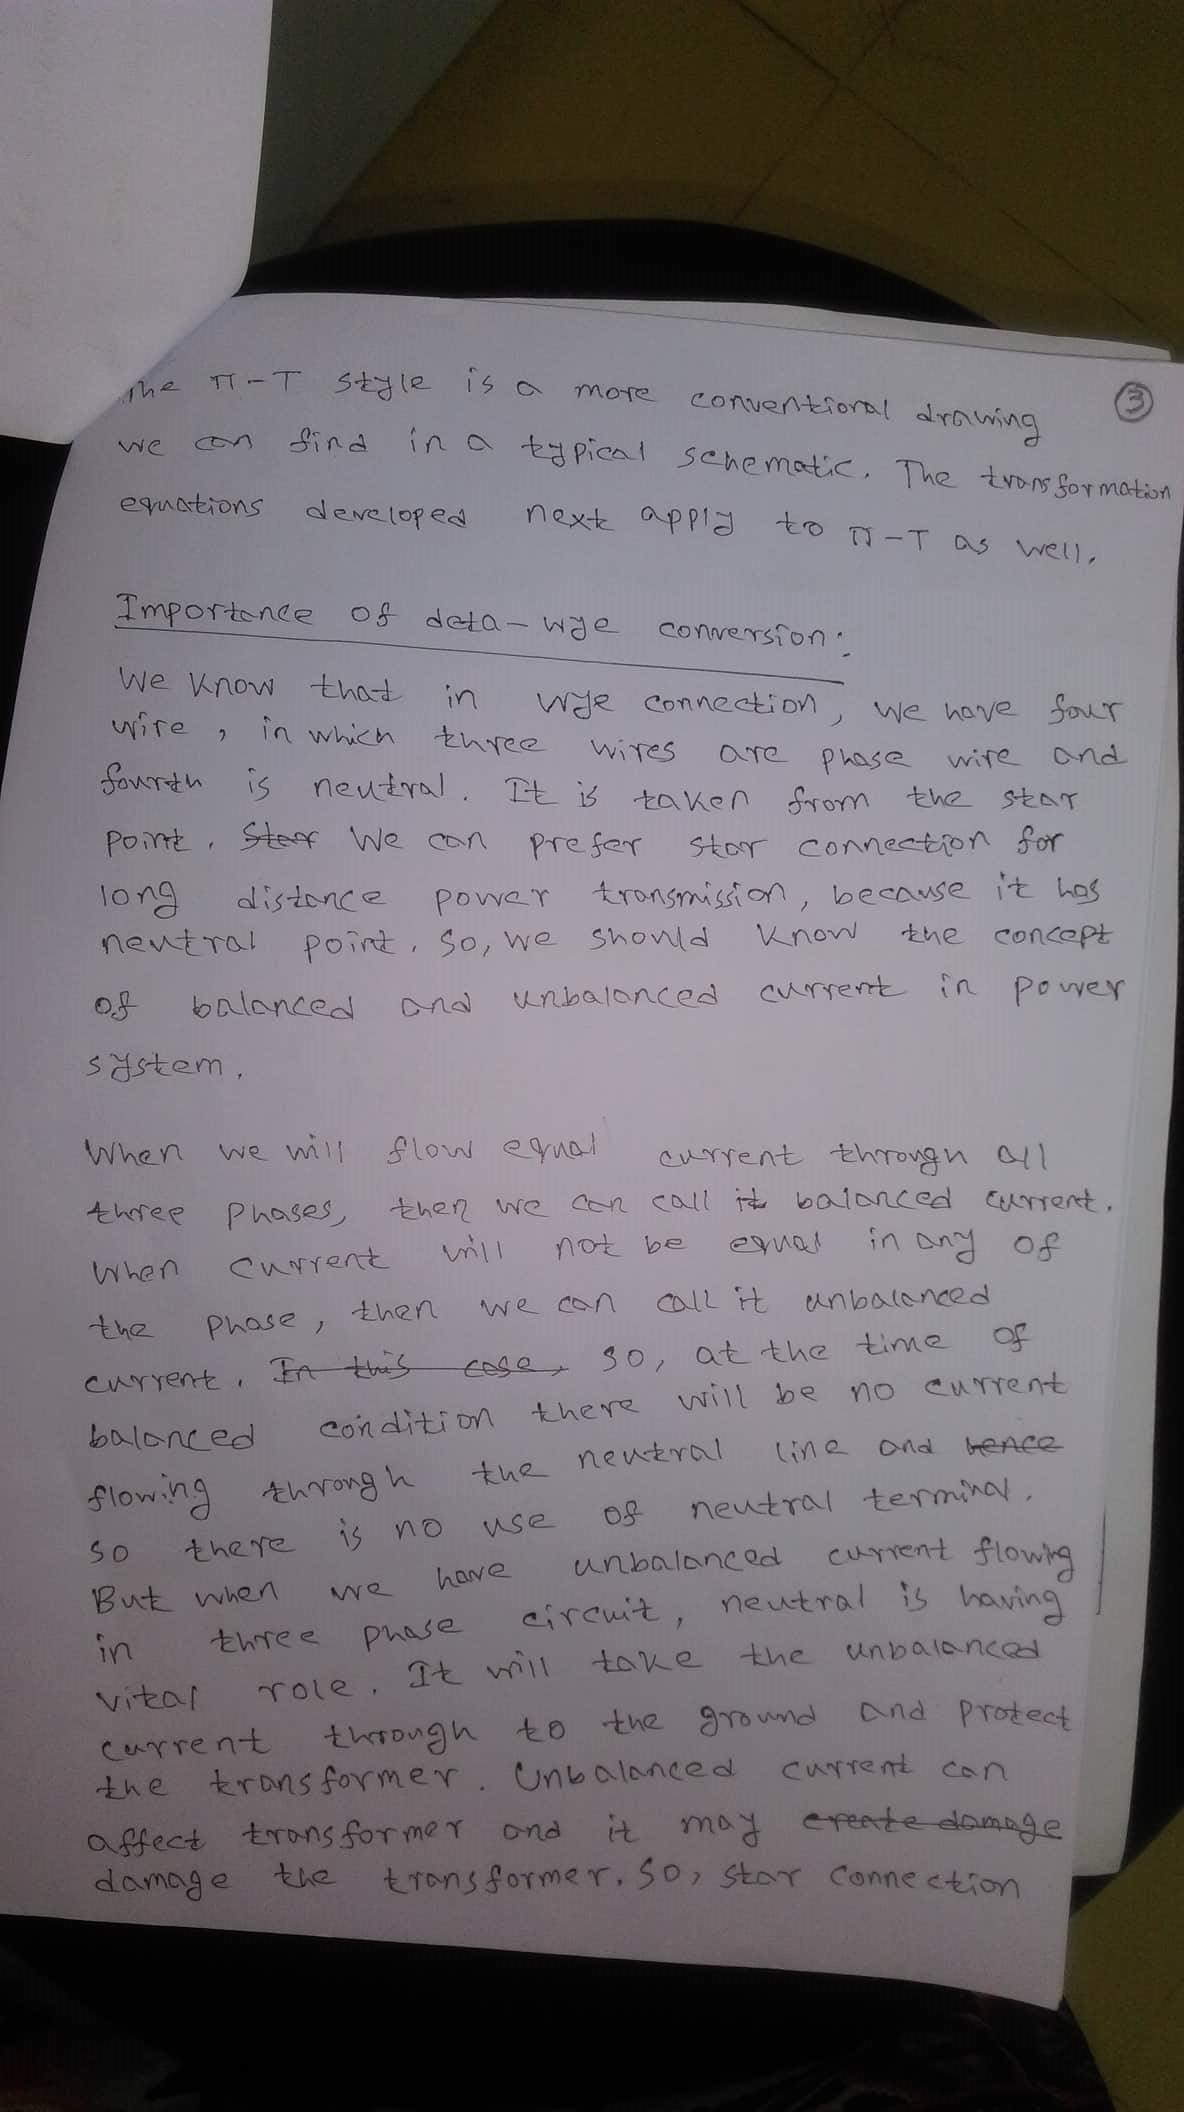 ③
The π-T style is a more conventional drawing
we can find in a typical schematic. The transformation
equations developed next apply to π-T as well.
Importance of deta-wye conversion:
We know that in wye connection, we have four
wire, in which three wires are phase wire and
fourth is neutral. It is taken from the star
point. Star We can prefer star connection for
long distance power transmission, because it has
neutral point. So, we should know the concept
of balanced and unbalanced current in power
system.
When we will flow equal current through all
three phases, then we can call it balanced current.
When current will not be equal in any of
the phase, then we can call it unbalanced
current. In this case, So, at the time of
balanced condition there will be no current
flowing through the neutral line and hence
so there is no use of neutral terminal.
But when we have unbalanced current flowing
in three phase circuit, neutral is having
vital role. It will take the unbalanced
current through to the ground and protect
the transformer. Unbalanced current can
affect transformer and it may create damage
damage the transformer. So, star connection